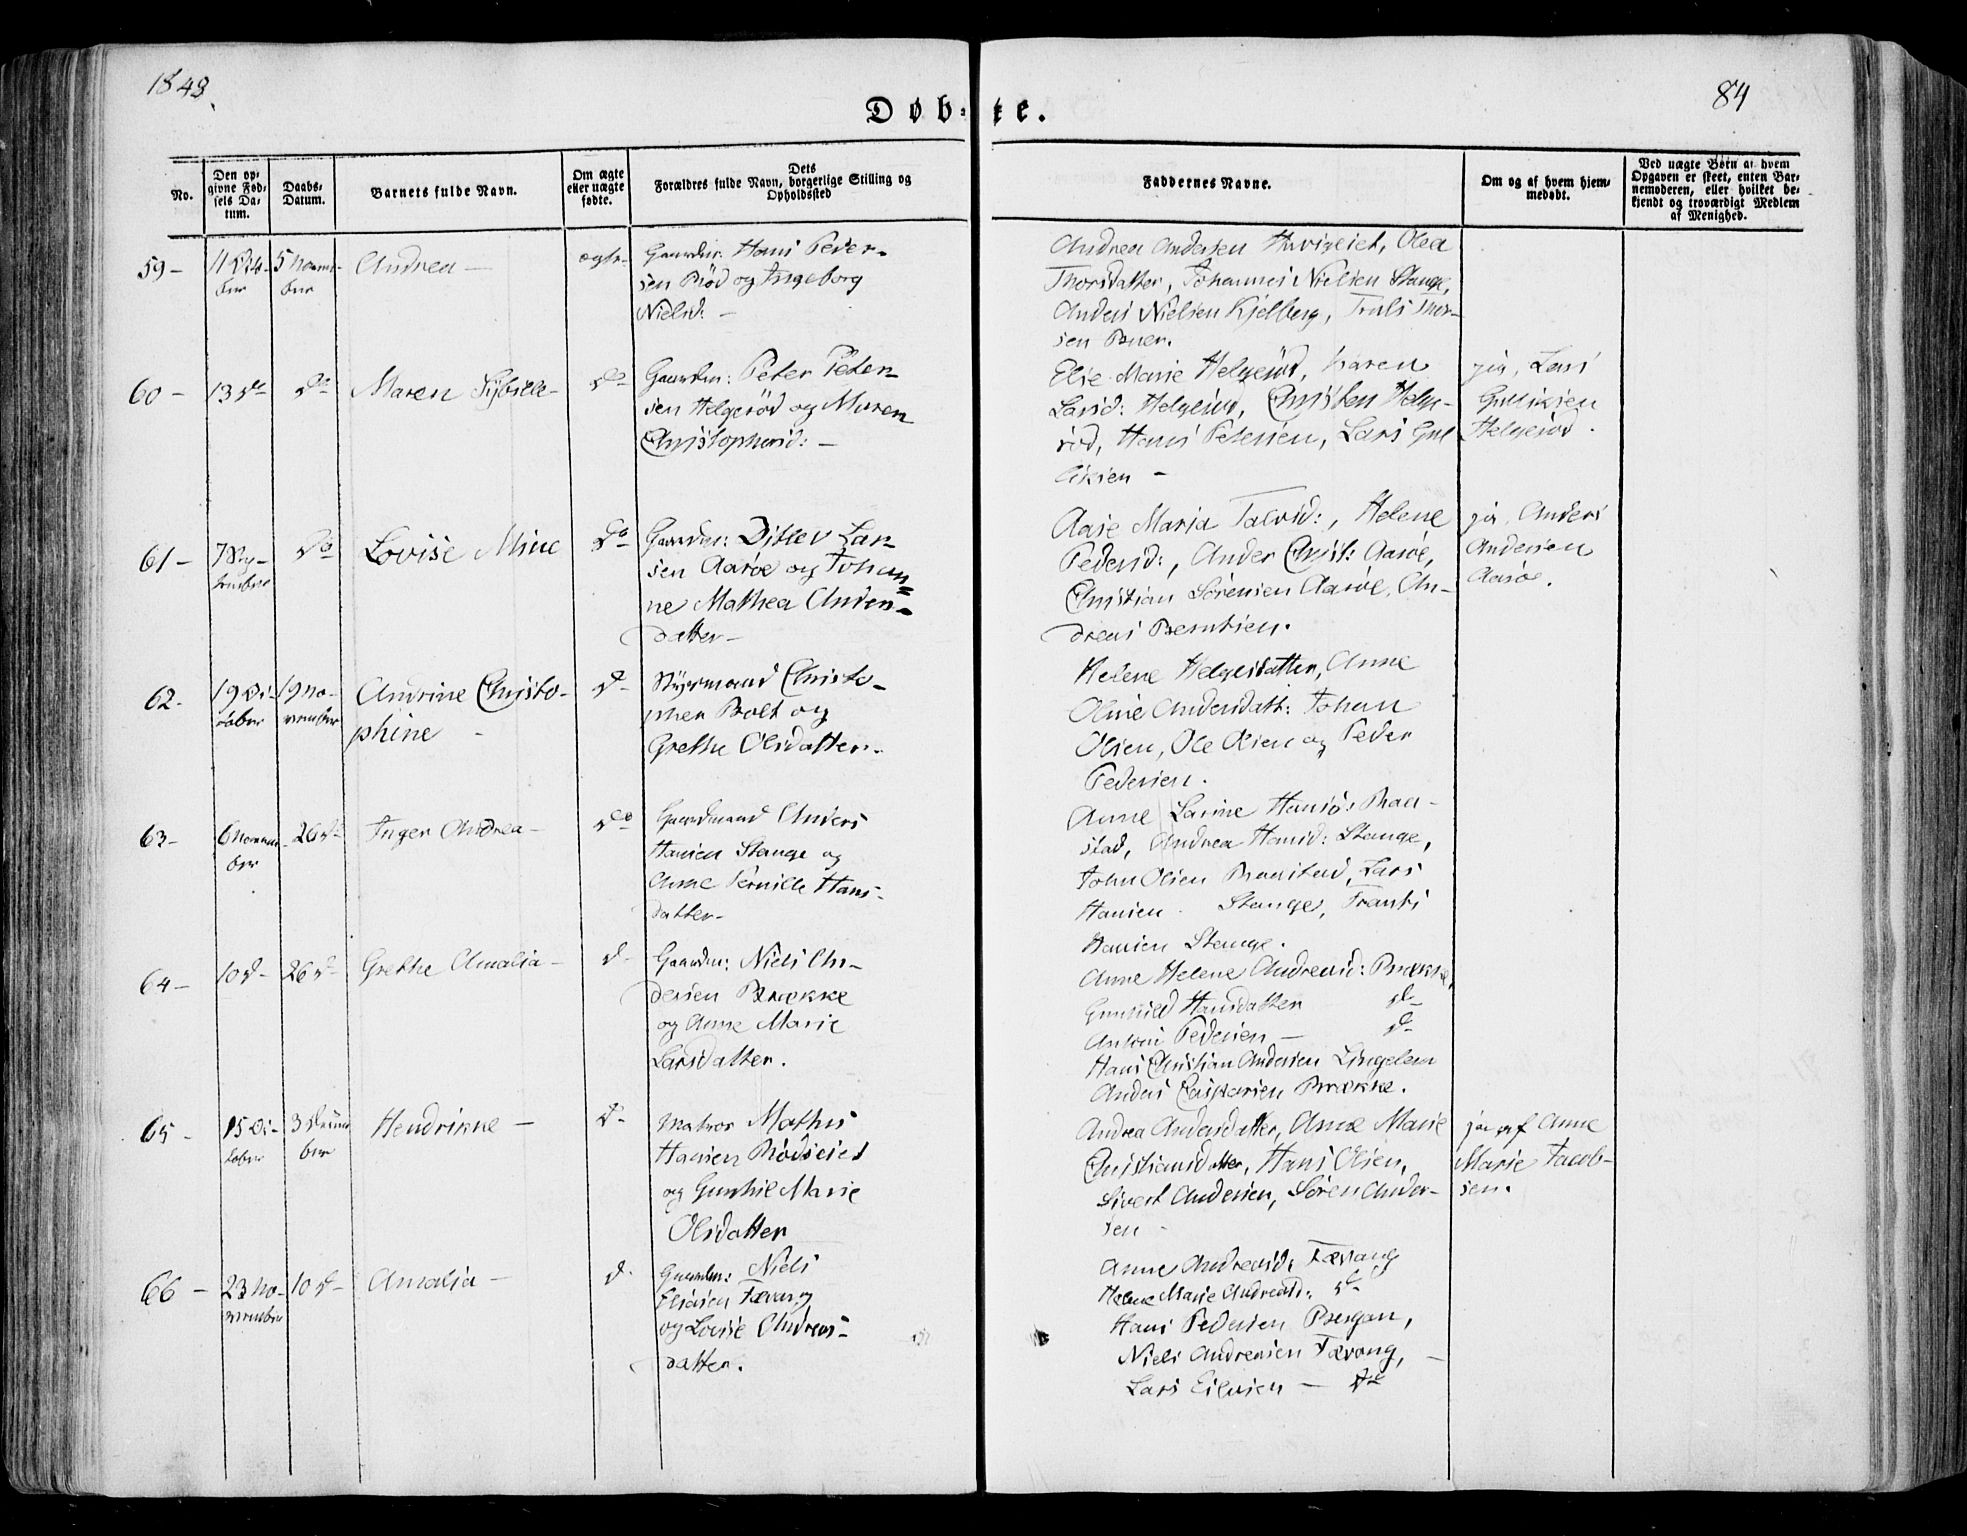 1843
84
Døbte.
No.
Den opgivne Fødsels Datum.
Daabs-Datum.
Barnets fulde Navn.
Om ægte eller uægte fødte.
Dets Forældres fulde Navn, borgerlige Stilling og Opholdssted
Faddernes Navne.
Om og af hvem hjemmedøbt.
Ved uægte Børn af hvem Opgaven er skeet, enten Barnemoderen, eller hvilket bekjendt og troværdigt Medlem af Menighed.
59 -
Andrea -
Hans Peder-
sen Rød og Ingeborg
Nielsd: -
Andrea Andersen, Olea
Thorsdatter, Johannes Nielsen Stange,
Anders Nielsen Kjelberg, Truls Thor-
sen Buer.
60 -
13 do
do
Maren Sybille -
do
Gaardm: Peter Peter-
sen Helgerød og Maren
Christophersd: -
Elise Marie Helgerød, Karen
Larsd: Helgerød, Christen Helge-
rød, Hans Petersen, Lars Gul
liksen -
ja, Lars
Gulliksen
Helgerød.
61 -
7 Sep-
tember
do
Lovise Mine
do
Gaardm: Ditlev Lar-
sen Aarøe og Johan-
ne Mathea Anders-
datter -
Aase Maria, Helene
Pedersd:, Anders Christ: Aarøe,
Christian Sørensen Aarøe, An-
dreas Berntsen.
ja, Anders
Andersen
Aarøe.
62.
19 Oc-
tober
19 No-
vember
Andrine Christo-
phine -
d -
Styrmand Christo-
pher Bolt og
Grethe Olsdatter. -
Helene Helgesdatter, Anne
Oline Andersdatt: Johan
Olsen, Ole Olsen og Peder
Pedersen.
63 -
6 Novem-
ber
26 d -
Inger Andrea -
do
Gaardmand Anders
Hansen Stange og
Anne Pernille Hans-
datter -
Anne Larine Hansd: Baa-
stad, Andrea Hansd: Stange,
John Olsen Baastad, Lars
Hansen Stange, Frants
Hansen Stange.
64 -
10 d -
26 d -
Grethe Amalia -
d -
Gaardm: Niels An-
dersen Brække
og Anne Marie
Larsdatter.
Anne Helene Andreasd: Brække,
Gunnild Hansdatter do
Anton Pedersen - do
Hans Christian Andersen Lingelem
Anders Caspersen Brække.
65 -
15 Oc-
tober
3 Decem
ber
Hendrikke -
d -
Matros Mathis
Hansen Rødseiet
og Gunhil Marie
Olsdatter
Andrea Andersdatter, Anne Marie
Christiansdatter, Hans Olsen,
Sivert Andersen, Søren Ander-
sen -
ja, af Anne
Marie Jacob-
sen.
66 -
23 No-
vember
10 d -
Amalia -
d.
Gaardm: Niels
Eliasen Tævang
og Lovise Andreas-
datter.
Anne Andreasd: Tævang
Helene Marie Andreasd: do
Hans Pedersen Bergan,
Niels Andreasen Tævang, -
Lars - do